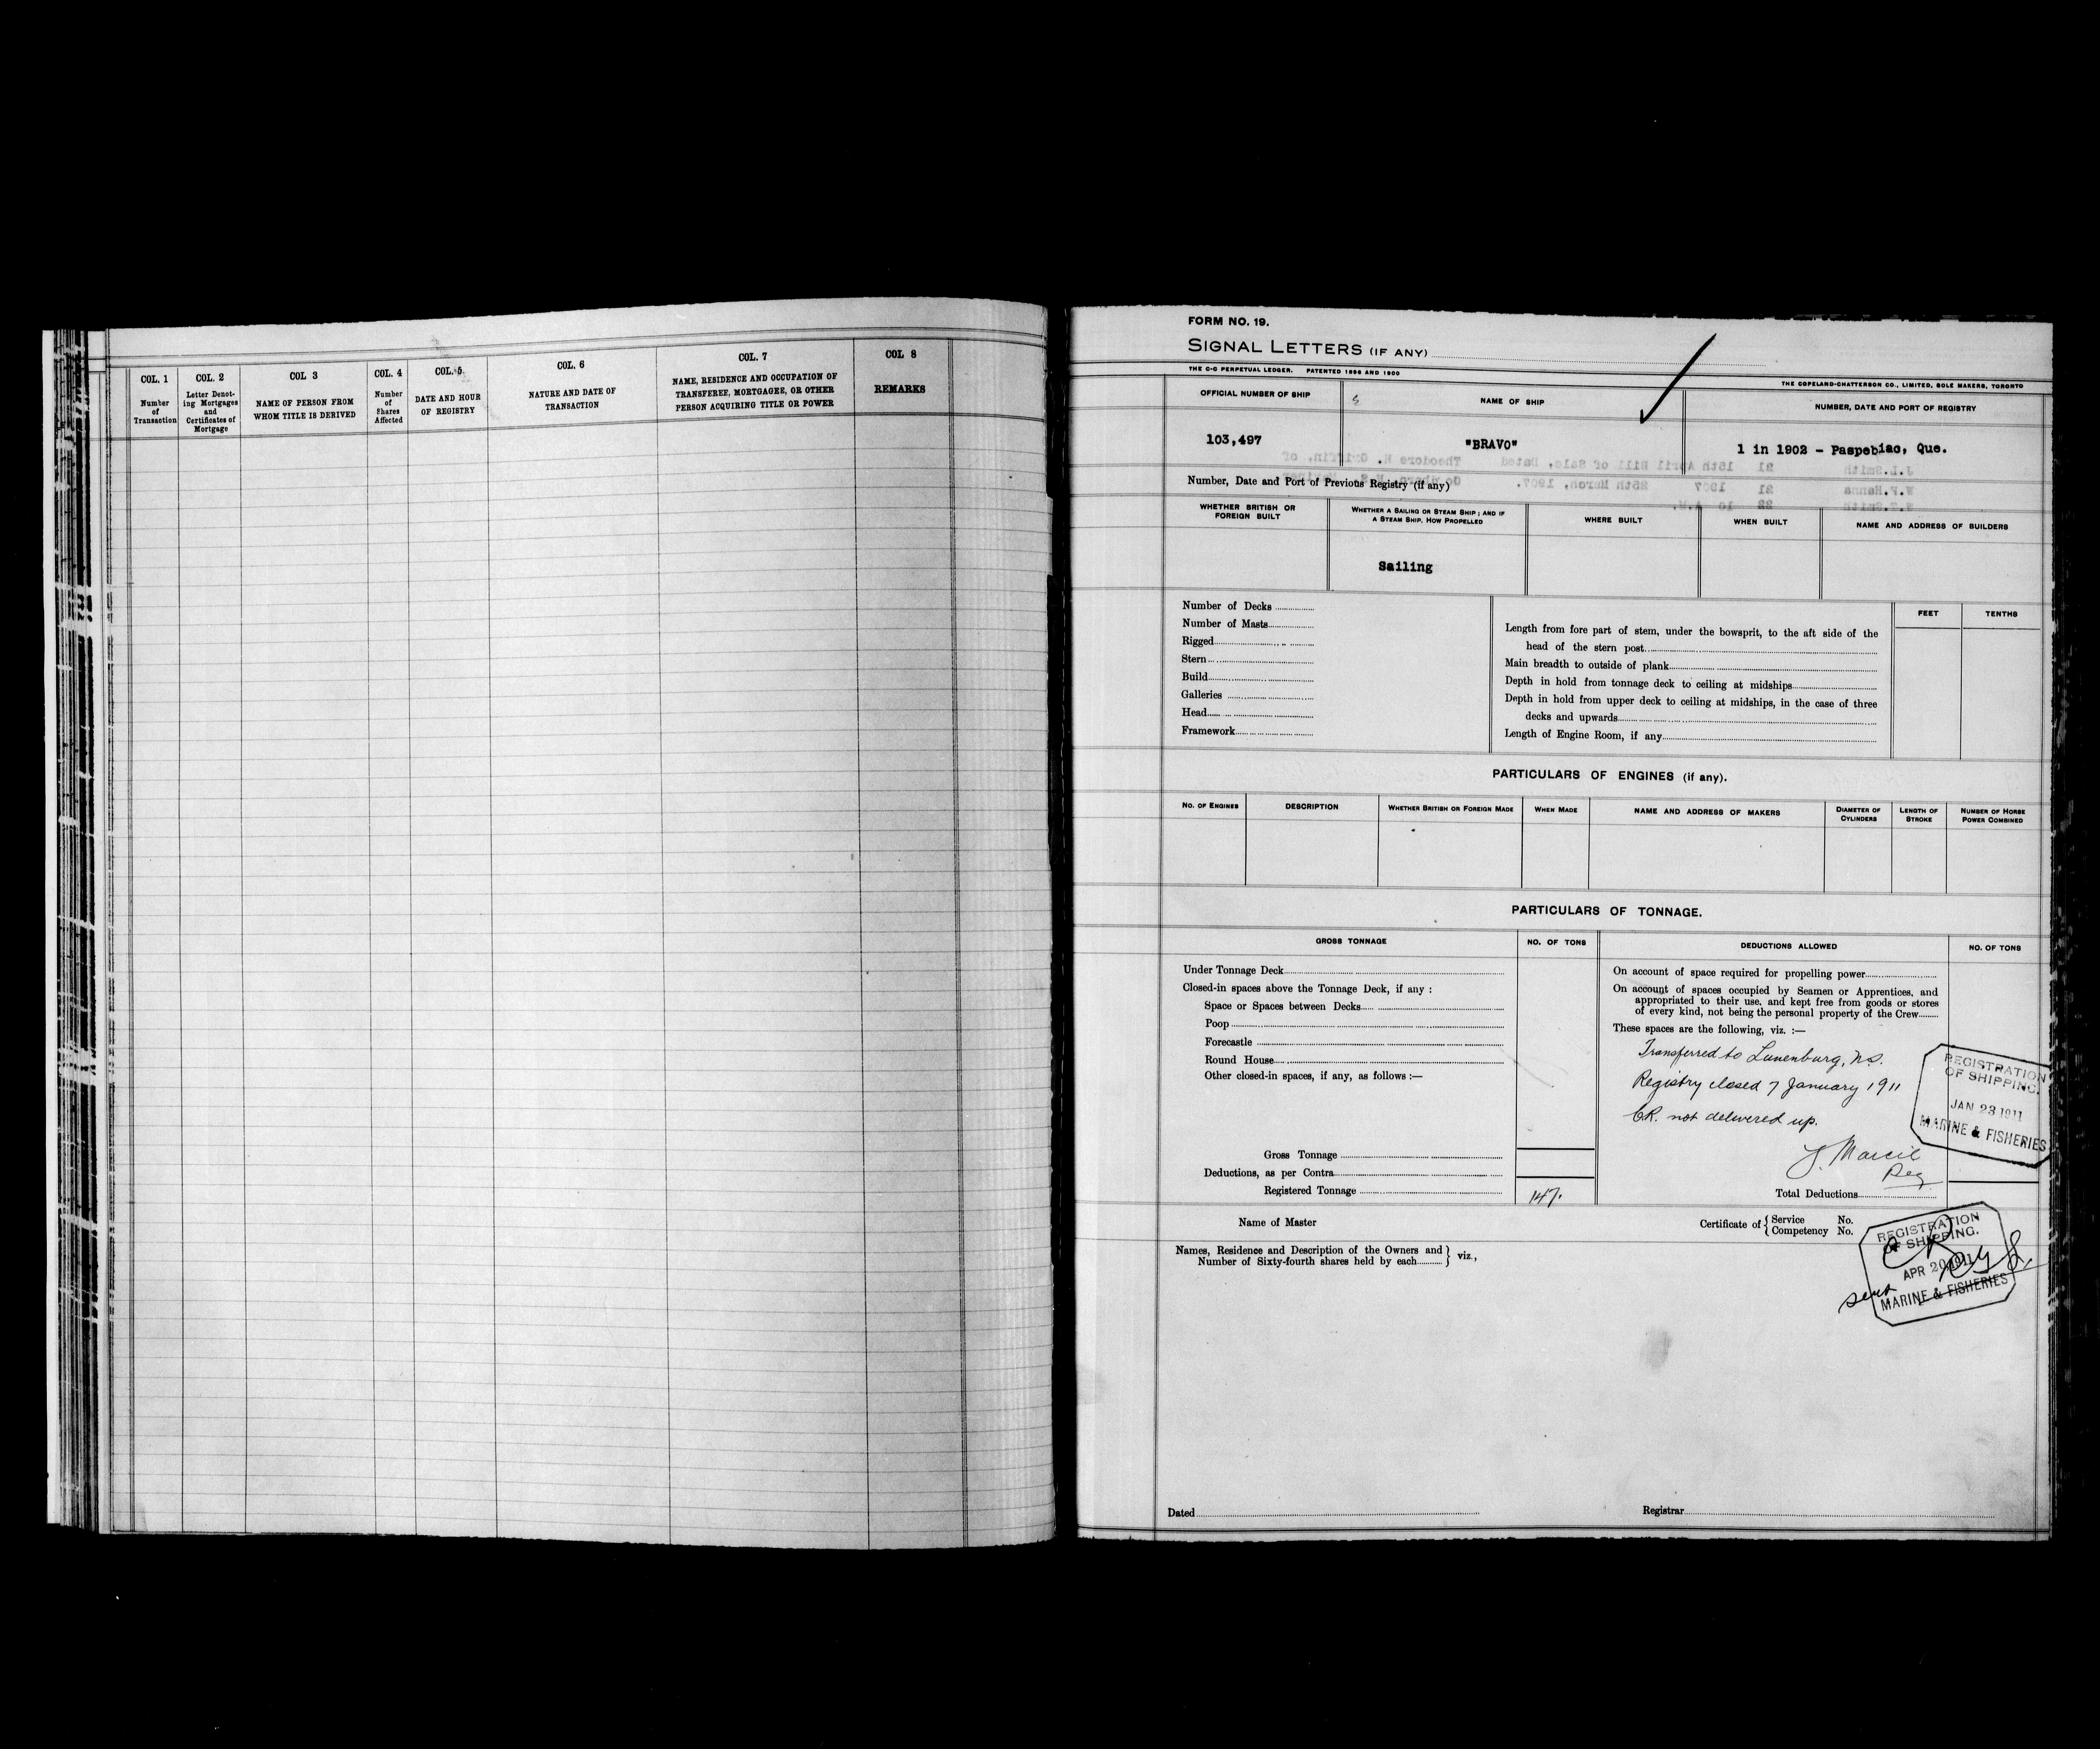 COL. 1
Number
of
Transaction
COL. 2
Letter Denot-
ing Mortgages
and
Certificates of
Mortgage
COL 3
NAME OF PERSON FROM
WHOM TITLE IS DERIVED
COL. 4
Number
of
Shares
Affected
COL. 5
DATE AND HOUR
OF REGISTRY
COL. 6
NATURE AND DATE OF
TRANSACTION
COL. 7
NAME, RESIDENCE AND OCCUPATION OF
TRANSFEREE, MORTGAGEE, OR OTHER
PERSON ACQUIRING TITLE OR POWER
COL 8
REMARKS
FORM NO. 19.
SIGNAL LETTERS (IF ANY)
THE C-C PERPETUAL LEDGER. PATENTED 1896 AND 1900
THE COPELAND-CHATTERSON CO., LIMITED, SOLE MAKERS, TORONTO
OFFICIAL NUMBER OF SHIP
103,497
NAME OF SHIP
"BRAVO"
NUMBER, DATE AND PORT OF REGISTRY
1 in 1902 - Paspebiac, Que.
Number, Date and Port of Previous Registry (if any)
WHETHER BRITISH OR
FOREIGN BUILT
WHETHER A SAILING OR STEAM SHIP; AND IF
A STEAM SHIP, HOW PROPELLED
Sailing
WHERE BUILT
WHEN BUILT
NAME AND ADDRESS OF BUILDERS
Number of Decks
Number of Masts
Rigged
Stern
Build
Galleries
Head
Framework
FEET
TENTHS
Length from fore part of stem, under the bowsprit, to the aft side of the
head of the stern post
Main breadth to outside of plank
Depth in hold from tonnage deck to ceiling at midships
Depth in hold from upper deck to ceiling at midships, in the case of three
decks and upwards
Length of Engine Room, if any
PARTICULARS OF ENGINES (if any).
NO. OF ENGINES
DESCRIPTION
WHETHER BRITISH OR FOREIGN MADE
WHEN MADE
NAME AND ADDRESS OF MAKERS
DIAMETER OF
CYLINDERS
LENGTH OF
STROKE
NUMBER OF HORSE
POWER COMBINED
PARTICULARS OF TONNAGE.
GROSS TONNAGE
NO. OF TONS
DEDUCTIONS ALLOWED
NO. OF TONS
Under Tonnage Deck
Closed-in spaces above the Tonnage Deck, if any :
Space or Spaces between Decks
Poop
Forecastle
Round House
Other closed-in spaces, if any, as follows :—
Gross Tonnage
Deductions, as per Contra
Registered Tonnage 147.
On account of space required for propelling power
On account of spaces occupied by Seamen or Apprentices, and
appropriated to their use, and kept free from goods or stores
of every kind, not being the personal property of the Crew
These spaces are the following, viz. :—
Transferred to Lunenburg, N.S.
Registry closed 7 January 1911
C.R. not delivered up.
J. Marcil
Reg
REGISTRATION
OF SHIPPING.
JAN 23 1911
MARINE & FISHERIES
Total Deductions
Name of Master
Certificate of { Service No.
Competency No.
Names, Residence and Description of the Owners and
Number of Sixty-fourth shares held by each } viz.,
REGISTRATION
OF SHIPPING.
APR 20 1911
MARINE & FISHERIES
sent
Dated
Registrar